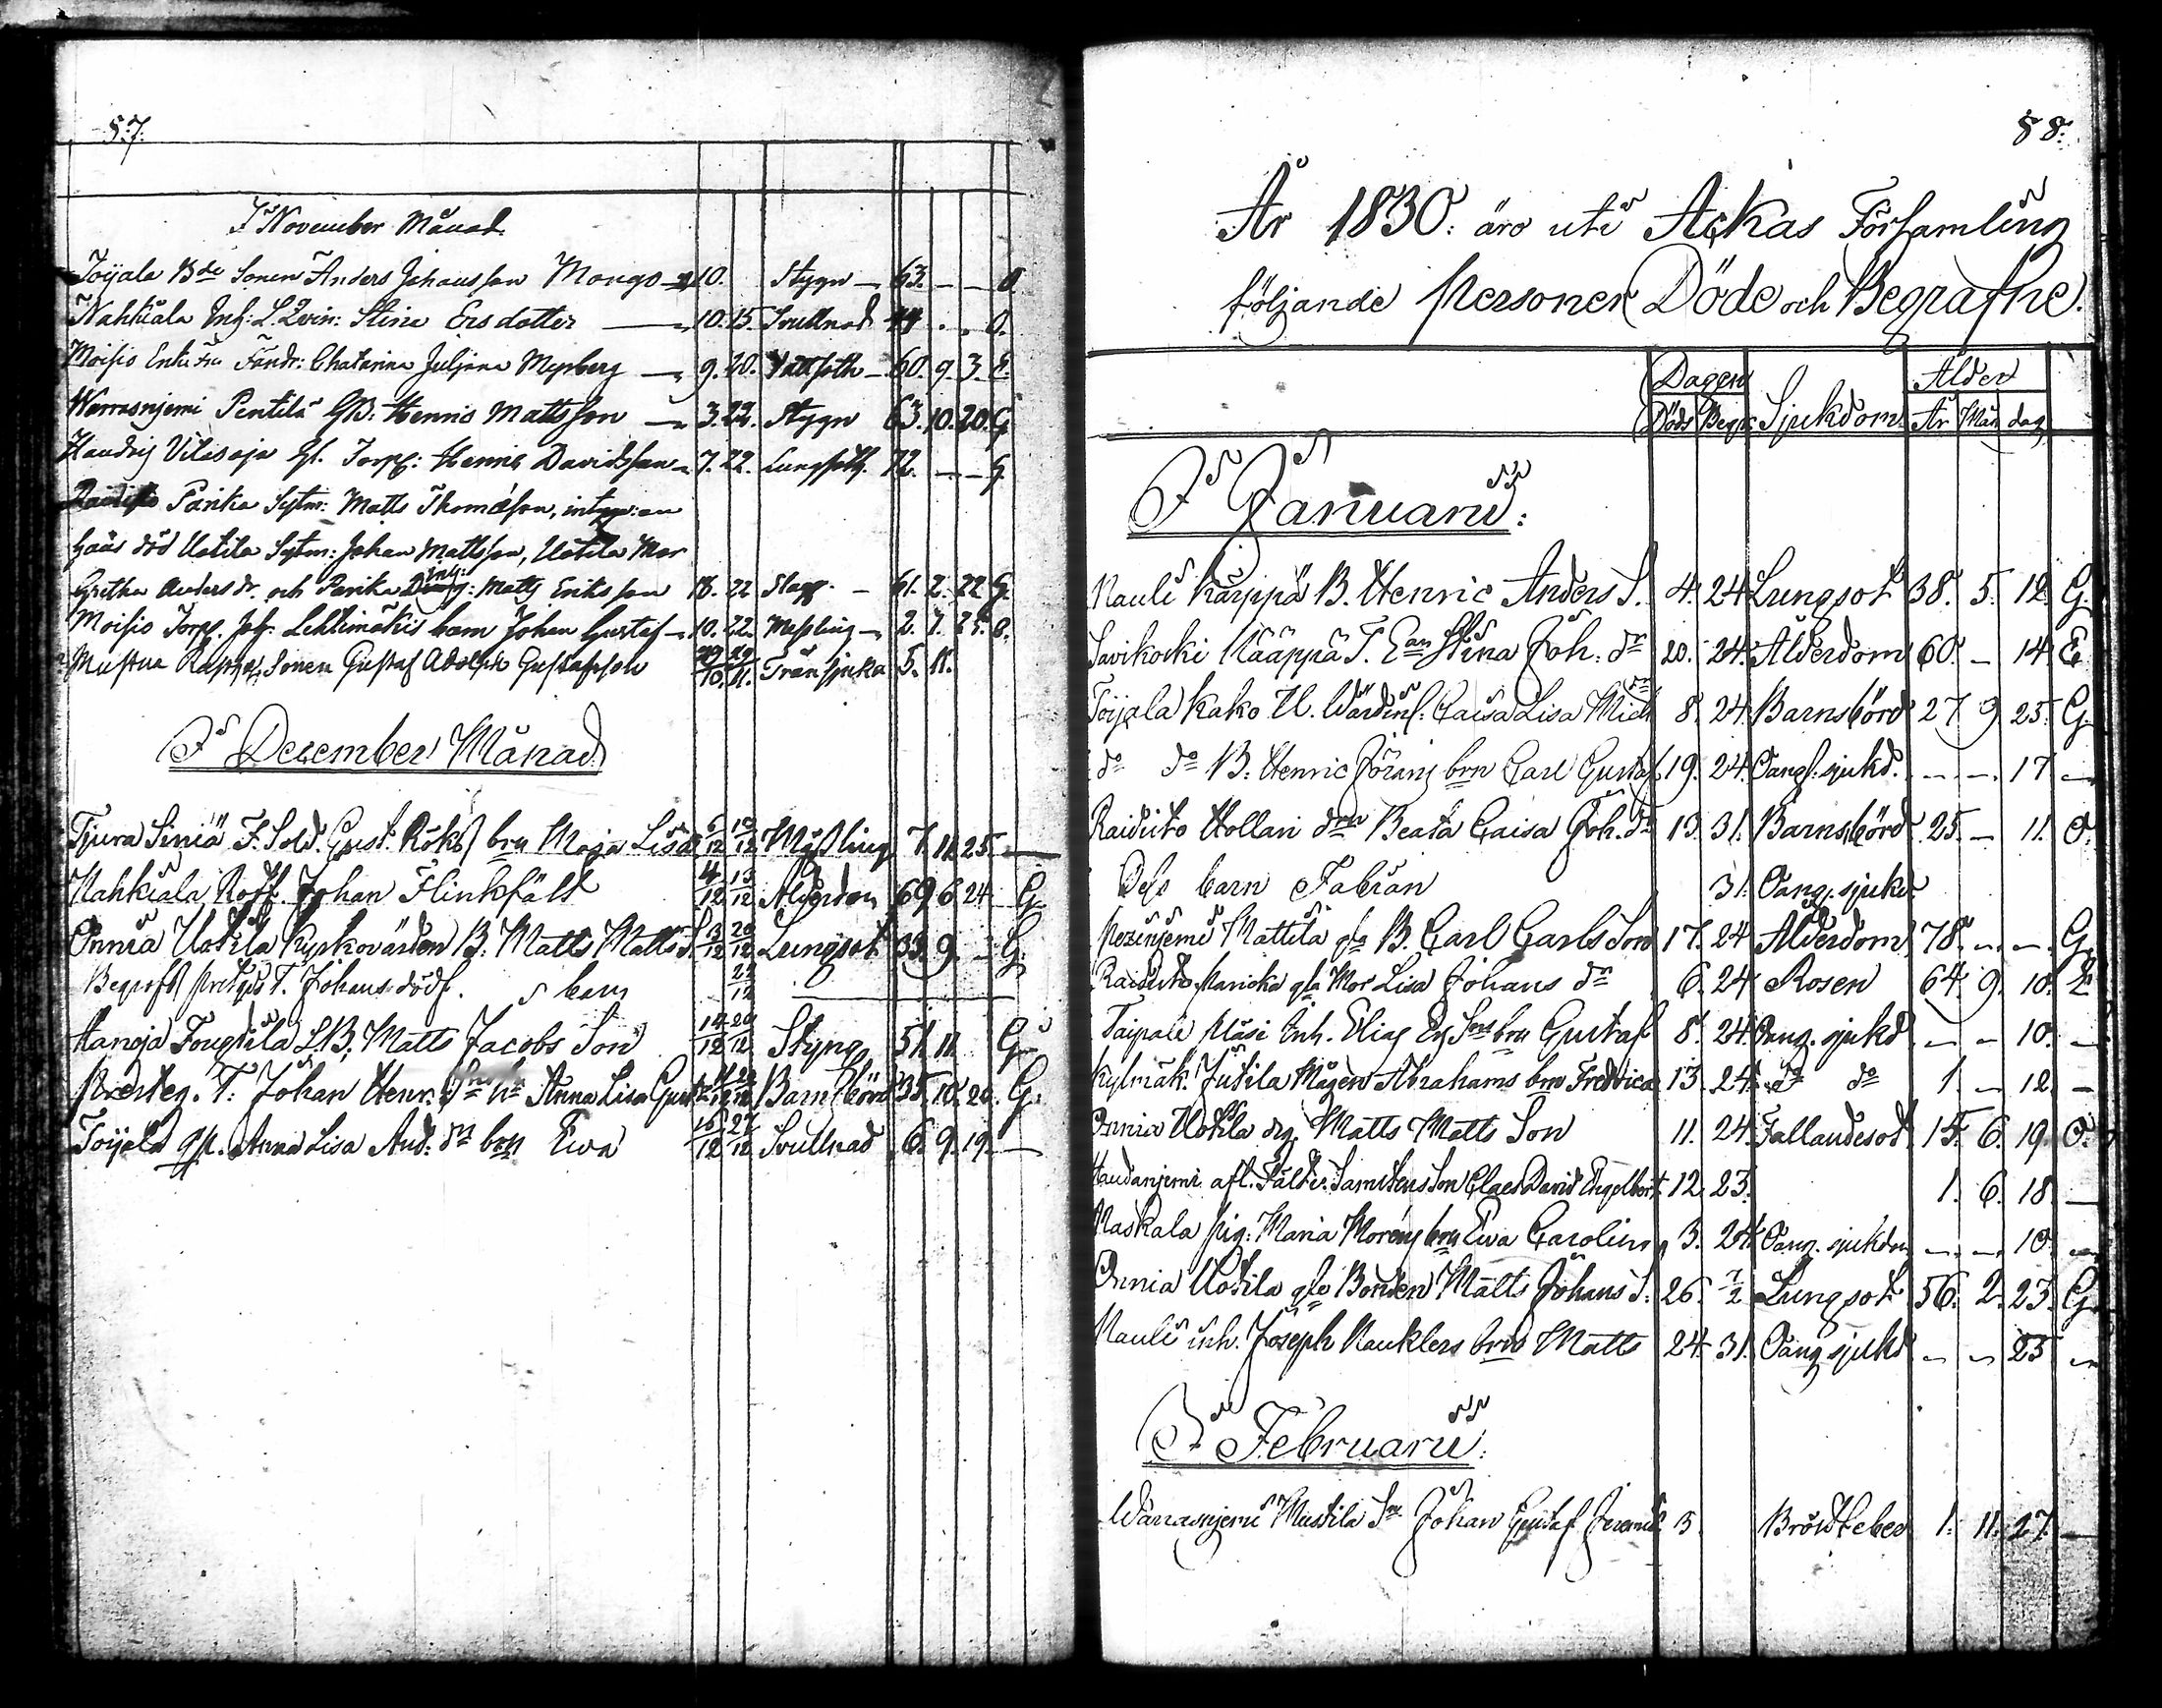 57.
I November Månad.
Toijala Bde Sonen Anders Johansson Mongo 10. Stygn 63. — — O.
Nahkiala Inh: Stina Ers dotter 10. 15. Svullnad 44 . . O.
Moisio Enke Fru Fändr: Chatarina Juljana 9. 20. 60. 9. 3. E.
Warrasnjemi Pentilä GB: Henric Mattsson 3. 22. Stygn 63. 10. 20. G
Uilasaja Gl. Torp: Henric Davidsson 7. 22. Lungsot 72. — — G
Parika Sytn: Matts Thomasson,
död Uotila Sytn: Johan Mattsson, Uotila Mor
Gretha Anders dr. och Parika Inh: Matts Eriksson 18. 22 Slagg — 61. 2. 22. G.
Moisio Torp. Joh. Lehtimäkis barn Johan Gustaf 10. 22. Messling 2. 7. 25. B.
Gustaf Adolph Gustafsson 29/10. 29/11. Trånsjuka 5. 11.
I December Månad
Tjura Siniä F. Sold. Gust. Röks brn Maja Lisa 6/12 10/12 Mäßling 7. 11. 25. —
Nahkiala Roff. Johan Flinkfält 4/12 13/12 Ålderdom 69 6 24 G.
Onnia Uotila Kyrkovärden B. Matts Matts S. 3/12 20/12 Lungsot 33. 9. — G.
Begrofs T. Johans dödf. barn 22/12
Hanoja Tougtila LB. Matts Jacobs Son 14/12 20/12 Styng 51. 11 G.
T. Johan Henr. Anna Lisa Gust. Barnsbörd 35. 10. 20. G.
Toijala qp. Anna Lisa And: dn brn Ewa 16/12 27/12 Svullnad 6. 9. 19. —
88.
År 1830. äro uti Ackas Församling
följande Personer Döde och Begrafne.
Dagen Sjukdom Ålder
Död Begr. År Mån dag
I Januarii:
Nauli Kärppä B. Henric Anders S. 4. 24 Lungsot 38. 5. 12. G.
Savikoski Kääppä T. Ean Stina Joh. dr 20. 24. Ålderdom 60. — 14. E
Toijala Kako U. Värdinf: Caisa Lisa Mich dr 8. 24. Barnsbörd 27 9 25. G.
do do B. Henric Jörans brn Carl Gustaf 19. 24. Oang. sjukd. — — 17 —
Raiduto Hollari drn Beata Caisa Joh. dr 13. 31. Barnsbörd 25. — 11. O.
Dess barn Fabian 31. Oang. sjukd.
Mattila gla B. Carl Carls Son 17. 24 Ålderdom 78. — — G.
Raiduto gla Mor Lisa Johans dr 6. 24 Rosen 64. 9. 10.
Taipale Inh. Elias Er Sons brn Gustaf 8. 24. Oang. sjukd — — 10. —
Kylmäk. Jutila Mågen Abrahams brn Fredrica 13. 24. do do 1. — 12. —
Onnia Uotila drg Matts Matts Son 11. 24. Fallandesot. 15. 6. 19. O.
Haudanjemi Son Claes David Engelbert 12. 23. 1. 6. 18. —
Naskala pig: Maria Moréns brn Ewa Carolina 3. 24. Oang. sjukdm — — 10. —
Onnia Uotila gle Bonden Matts Johans S. 26. 7/2 Lungsot 56. 2. 23. G.
Nauli inh. Joseph Nauklers brn Matts 24. 31. Oang. sjukd — — 25 —
I Februarii:
Wärrasnjemi Mustila Sn Johan Gustaf 3. Bröstfeber 1. 11. 27. —